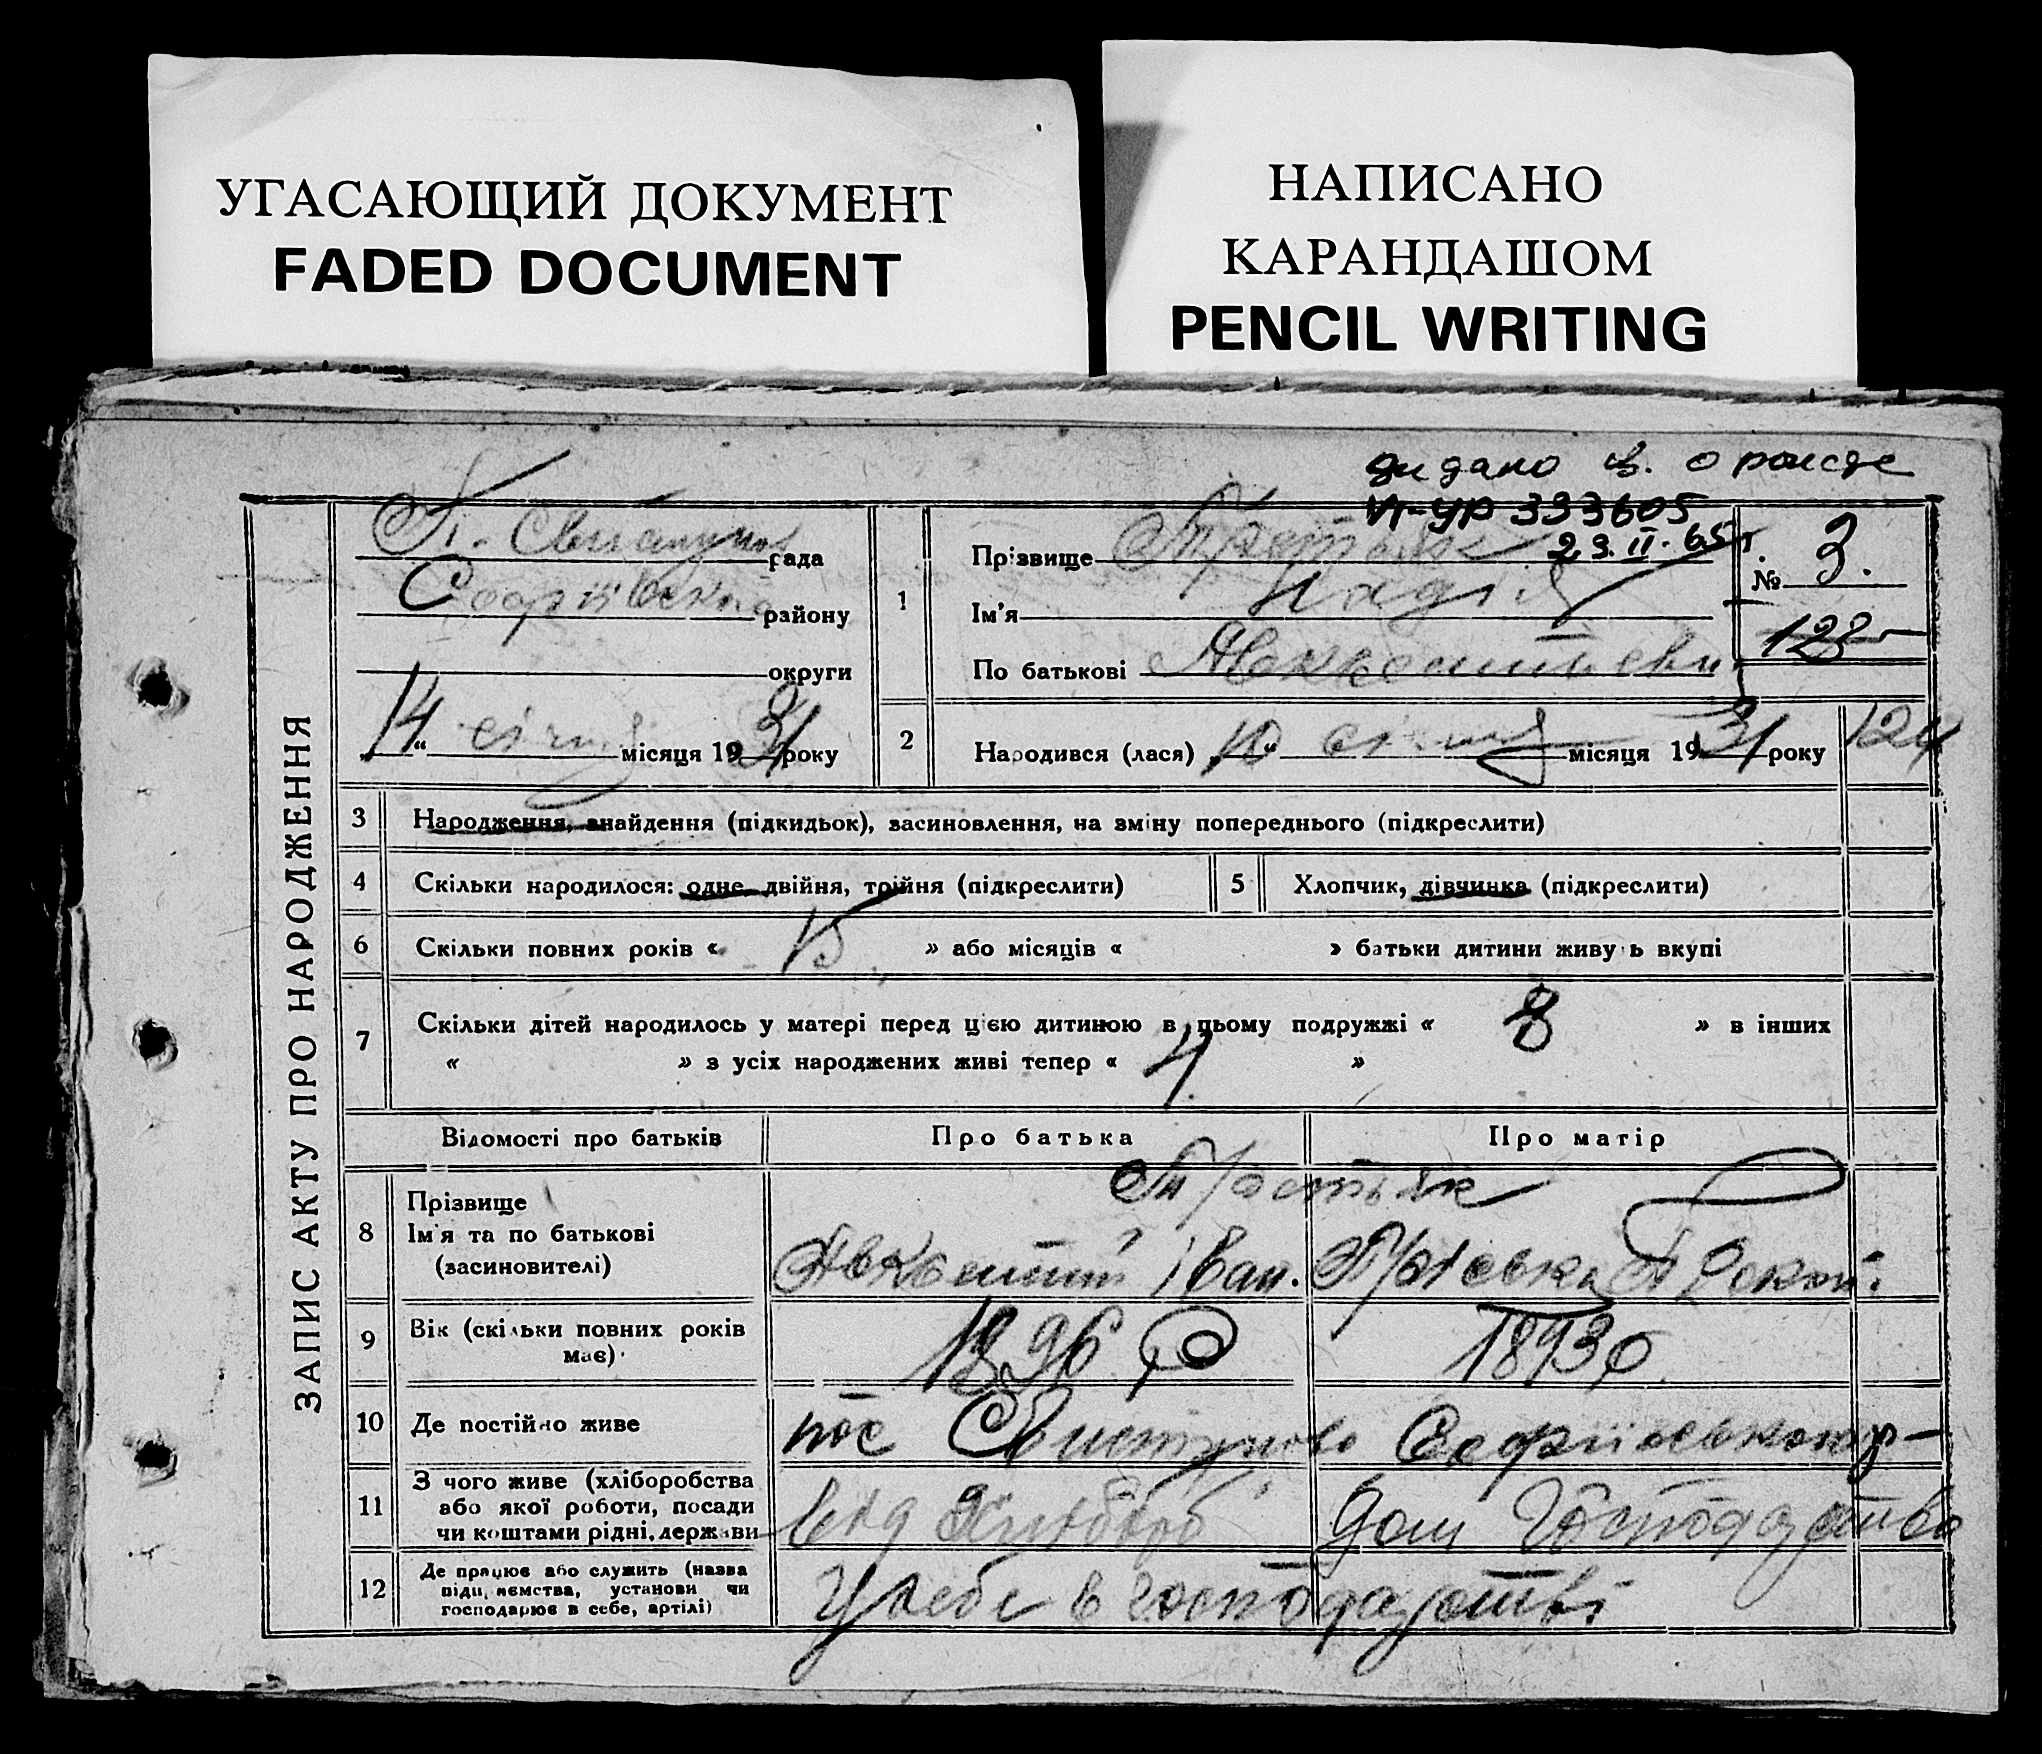 УГАСАЮЩИЙ ДОКУМЕНТ
FADED DOCUMENT
НАПИСАНО
КАРАНДАШОМ
PENCIL WRITING
ЗАПИС АКТУ ПРО НАРОДЖЕННЯ
видано св. о рожде
VI-УР 333605
23.II.65г.
рада
району
округи
14 " січня місяця 1931 року
1
Прізвище Третьяк
Ім'я Надія
По батькові
№ 3.
128
2
Народився (лася) 10 " січня місяця 1931 року
124
3 Народження, знайдення (підкидьок), засиновлення, на зміну попереднього (підкреслити)
4 Скільки народилося: одне, двійня, трійня (підкреслити)
5 Хлопчик, дівчинка (підкреслити)
6 Скільки повних років « 15 » або місяців « » батьки дитини живуть вкупі
7 Скільки дітей народилось у матері перед цією дитиною в цьому подружжі « 8 » в інших
« » з усіх народжених живі тепер « 4 »
Відомості про батьків Про батька Про матір
8 Прізвище
Ім'я та по батькові
(засиновителі)
Третьяк
Іван.
9 Вік (скільки повних років
має)
1896 р
1893 р
10 Де постійно живе
пос Свистуново Софіївського р-
11 З чого живе (хліборобства
або якої роботи, посади
чи коштами рідні, держави
від хлібороб
дом господарство
12 Де працює або служить (назва
підприємства, установи чи
господарює в себе, артілі)
У себе в господарстві